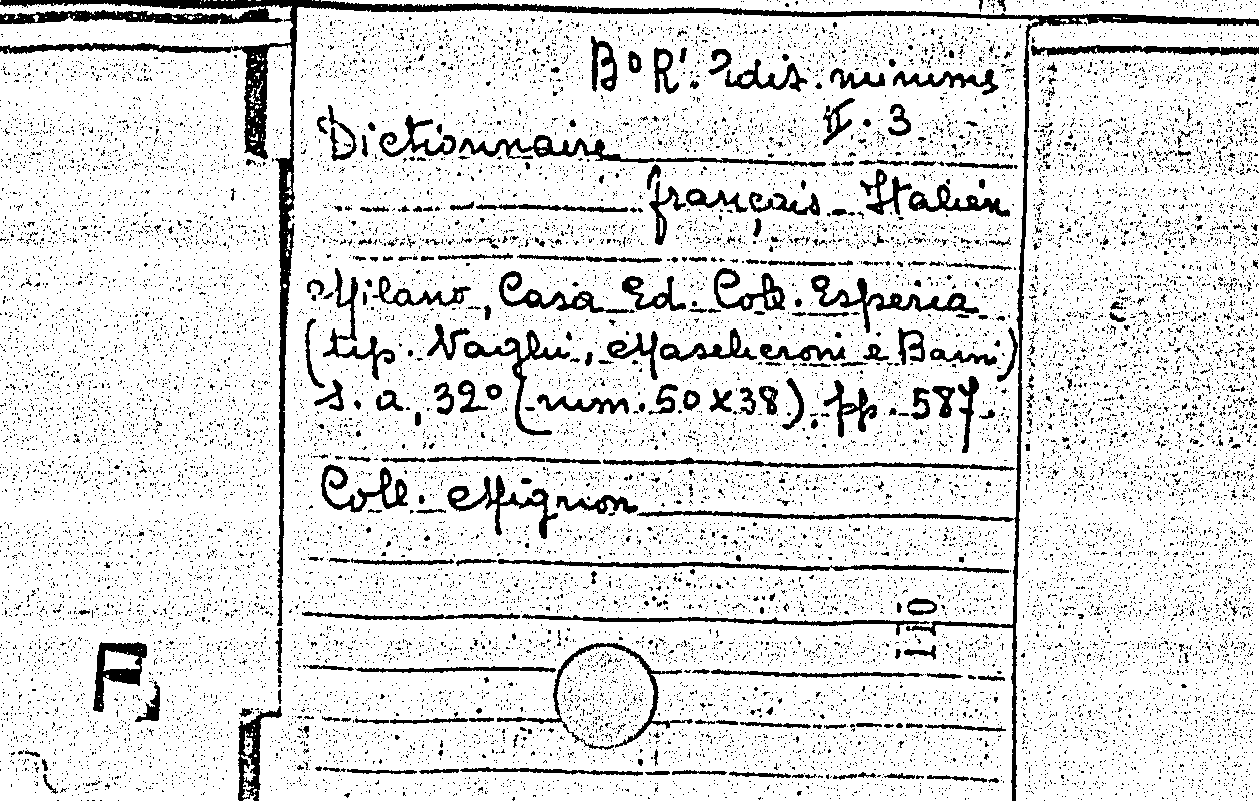 B° R'. Ediz. minime
II. 3
Dictionnaire
français-Italien
Milano, Casa Ed. Coll. Esperia
(tip. Vaghi, Maselicroni e Barni)
s. a, 32° (mm. 50x38), pp. 587.
Coll. Mignon
110